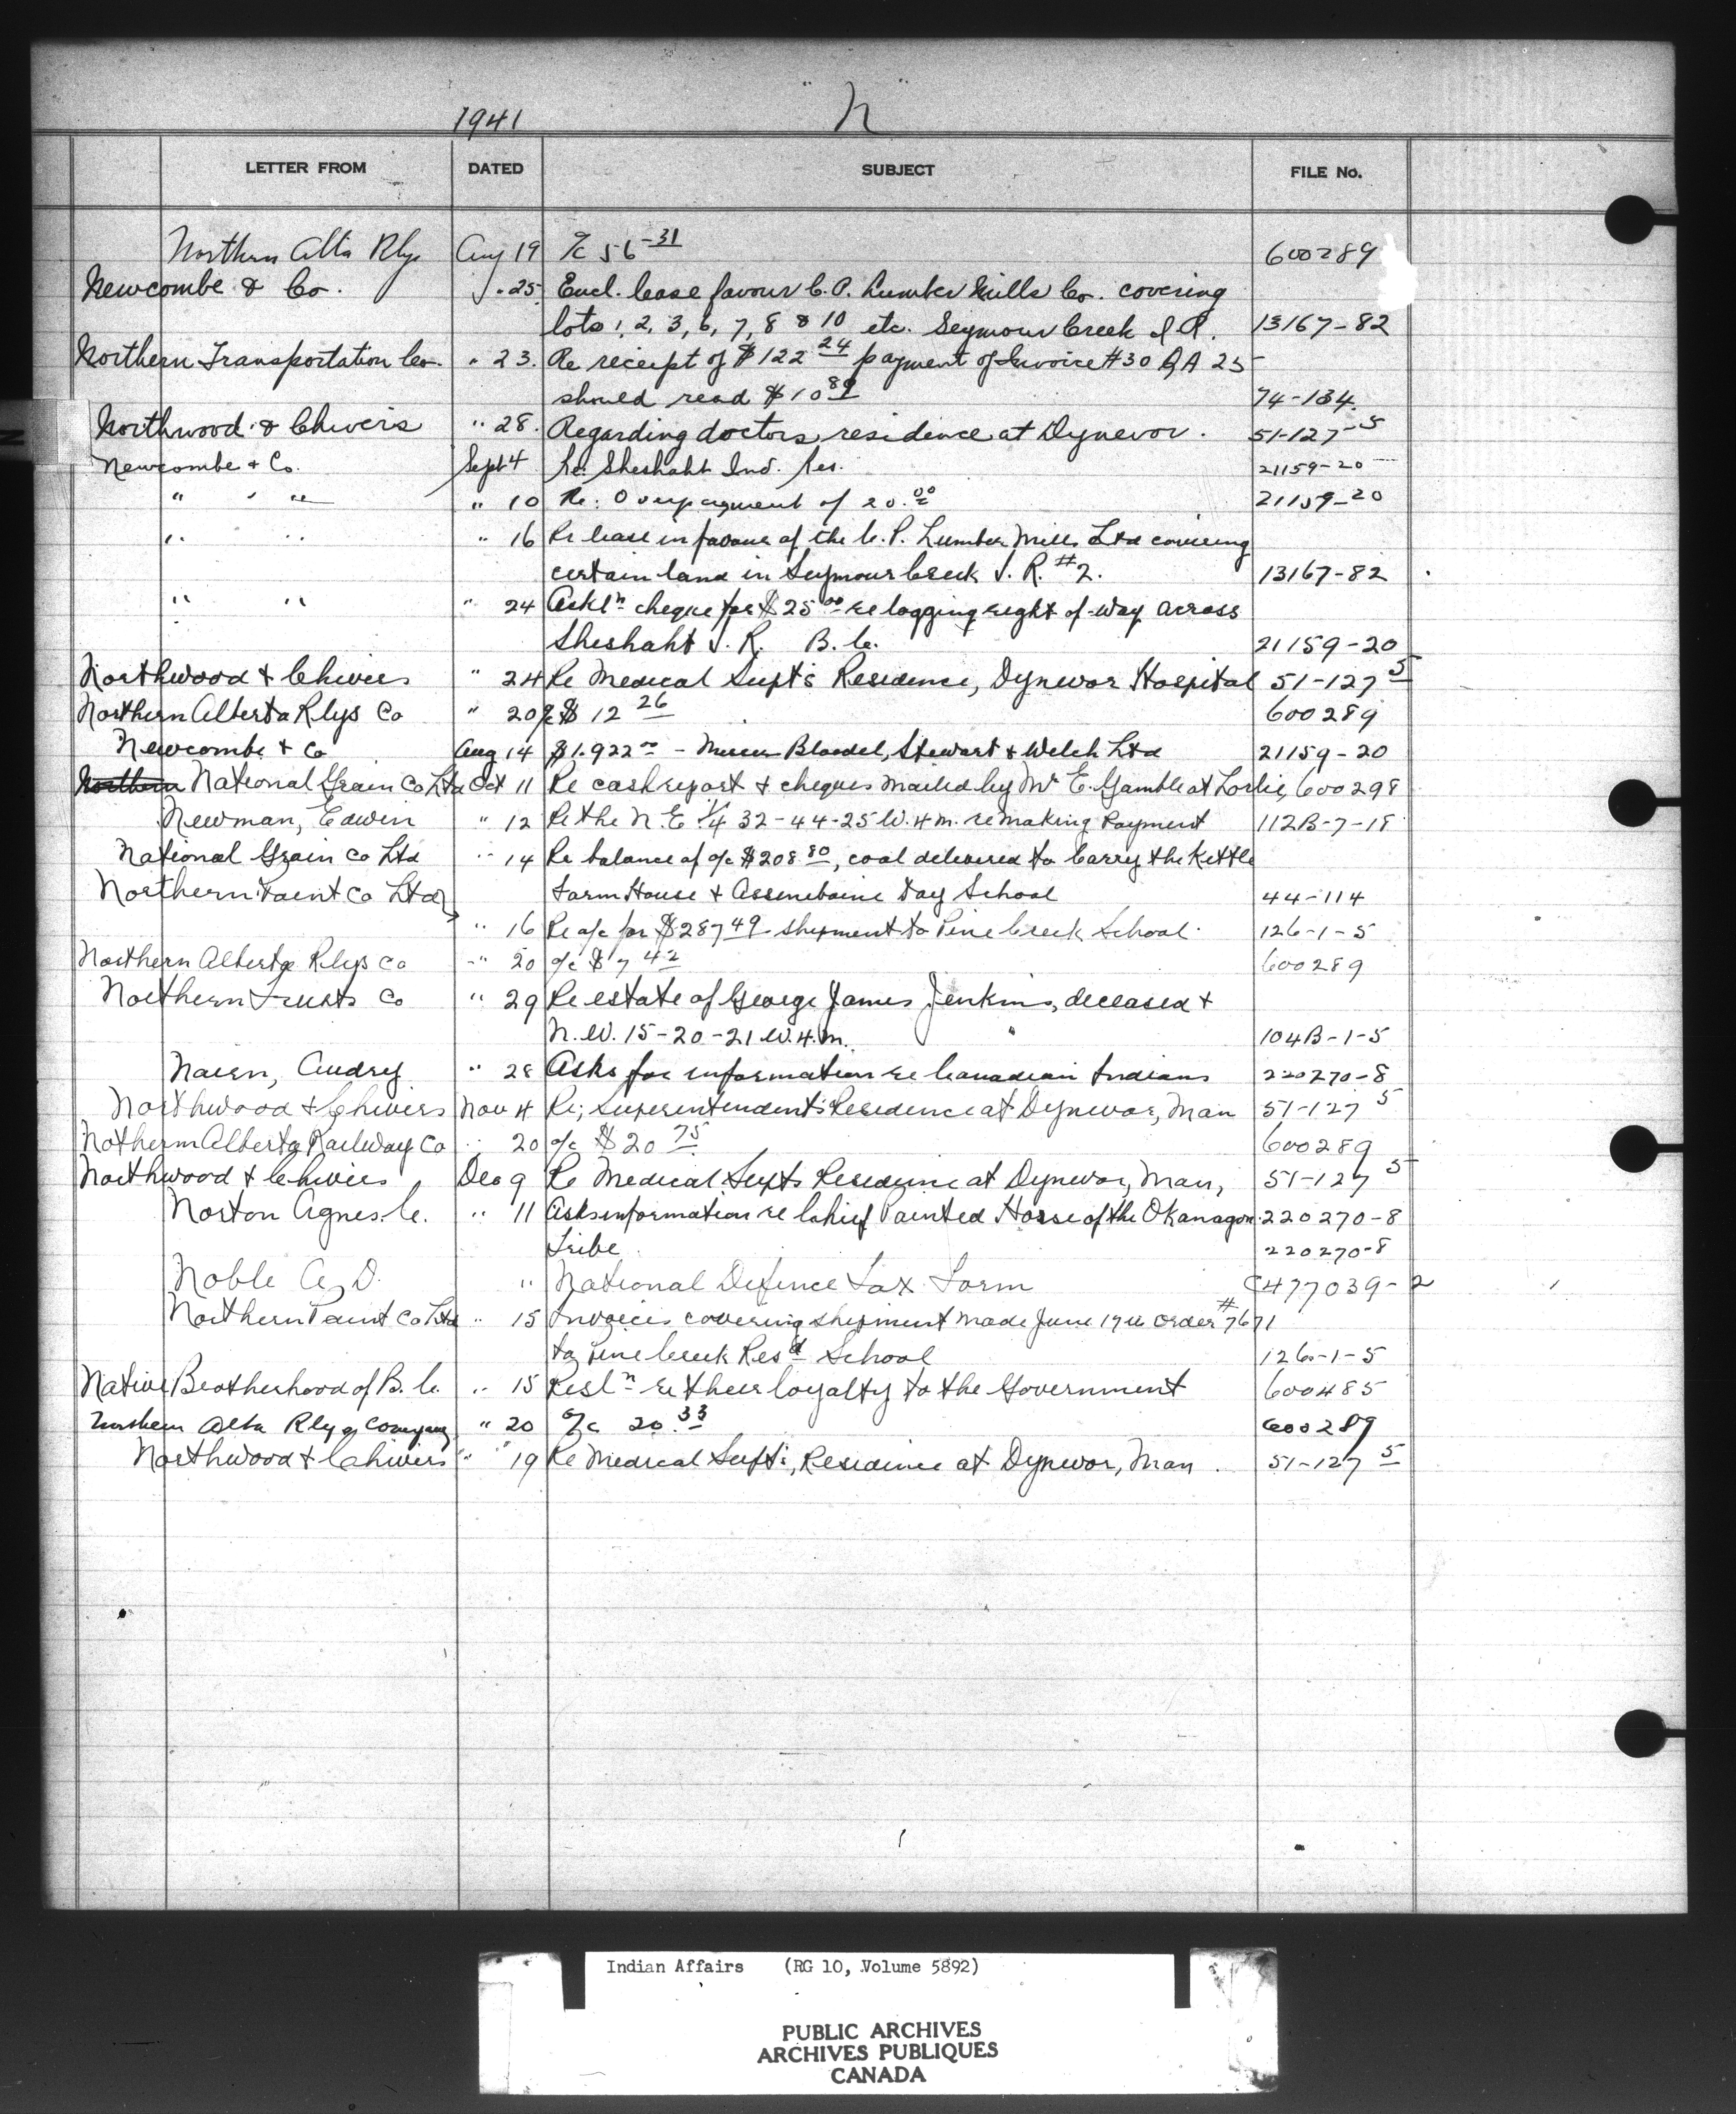 1941 "N"
LETTER FROM DATED SUBJECT FILE No.
Northern Alta Rlys Aug 19 a/c 56-31 600289
Newcombe & Co. " 25 Encl. lease favour C.P. Lumber Mills Co. covering
lots 1, 2, 3, 6, 7, 8 & 10 etc. Seymour Creek I.R. 13167-82
Northern Transportation Co. " 23. Re receipt of $122 24 payment of Invoice #30 QA 25
should read $10 89 74-134.
Northwood & Chivers " 28. Regarding doctors residence at Dynevor. 51-127-5
Newcombe + Co. Sept 4 Re: Sheshaht Ind. Res. 21159-20
" " " " 10 Re: Overpayment of 20.00 21159-20
" " " 16 Re lease in favour of the C.P. Lumber Mills Ltd covering
certain land in Seymour Creek I.R. #2. 13167-82
" " " 24 Ackln cheque for $25 00 re logging right of way across
Sheshaht I.R. B.C. 21159-20
Northwood + Chivers " 24 Re Medical Supt's Residence, Dynevor Hospital 51-127 5
Northern Alberta Rlys Co " 20 a/c $ 12 26 600289
Newcombe + Co Aug 14 $1,922 00 - Messrs Bloedel, Stewart & Welch Ltd 21159-20
Northern National Grain Co Ltd Oct 11 Re cash report + cheques mailed by Mr E. Gamble at Lorlie, 600298
Newman, Edwin " 12 Re the N.E. 1/4 32-44-25 W.4 m. re making Payment 112B-7-18
National Grain Co Ltd " 14 Re balance of a/c $208 80, coal delivered to Carry the Kettle
Northern Paint Co Ltd Farm House + Assineboine Day School 44-114
" 16 Re a/c for $287 49 shipment to Pine Creek School. 126-1-5
Northern Alberta Rlys Co " 20 a/c $ 7 42 600289
Northern Trusts Co " 29 Re estate of George James Jenkins, deceased +
N.W. 15-20-21 W.4.m. " 104B-1-5
Nairn, Audrey " 28 Asks for information re Canadian Indians 220270-8
Northwood + Chivers Nov 4 Re; Superintendent's Residence at Dynevor, Man 51-127 5
Nothern Alberta Railway Co " 20 a/c $ 20 75 600289
Northwood + Chivers Dec 9 Re Medical Supts Residence at Dynevor, Man, 51-127 5
Norton Agnes. C. " 11 Asks information re Chief Painted Horse of the Okanagon 220270-8
Tribe 220270-8
Noble A. D. " National Defence Tax Form C477039-2
Northern Paint Co Ltd " 15 Invoices covering shipment made June 17th order #7671
to Pine Creek Resd School 126-1-5
Native Brotherhood of B.C. " 15 Resln re their loyalty to the Government 600485
Northern Alta Rlys Company " 20 a/c 20.33 600289
Northwood + Chivers " " 19 Re Medical Supt's, Residence at Dynevor, Man. 51-127 5
Indian Affairs (RG 10, Volume 5892)
PUBLIC ARCHIVES
ARCHIVES PUBLIQUES
CANADA